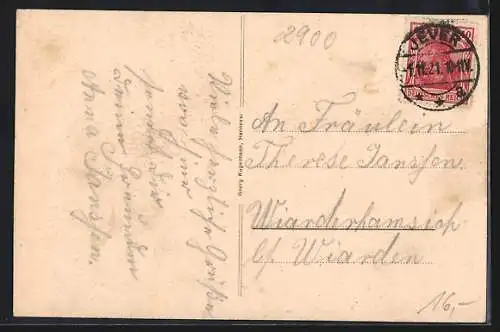 2900
JEVER
1.11.21. 10-11 V.
* a
10
Viele herzliche Grüße
aus Jever
sendet Dir
Deine Freundin
Anna Janssen.
Georg Kugelmann, Hannover
An Fräulein
Therese Janssen
Wiarderhamsich
b/ Wiarden
16,-